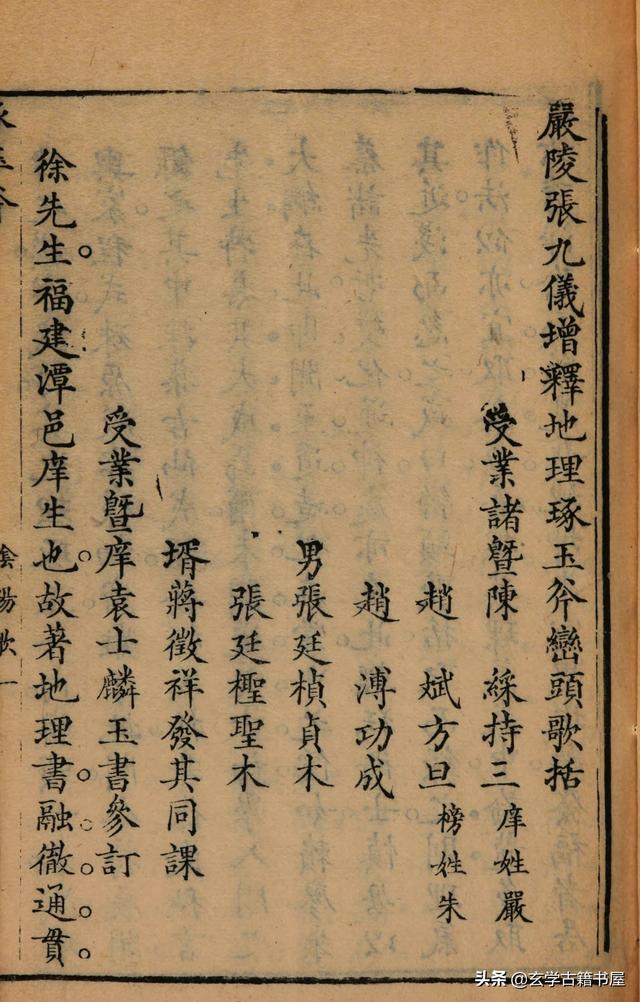 嚴陵張九儀增釋地理琢玉斧巒頭歌括
受業諸暨陳 綵持三 庠姓嚴
趙 斌方旦 榜姓朱
趙 溥功成
男張廷楨貞木
張廷檉聖木
壻蔣徵祥發其同課
受業暨庠袁士麟玉書參訂
徐先生福建潭邑庠生也故著地理書融徹通貫
陰陽歌 一
头条 @玄学古籍书屋